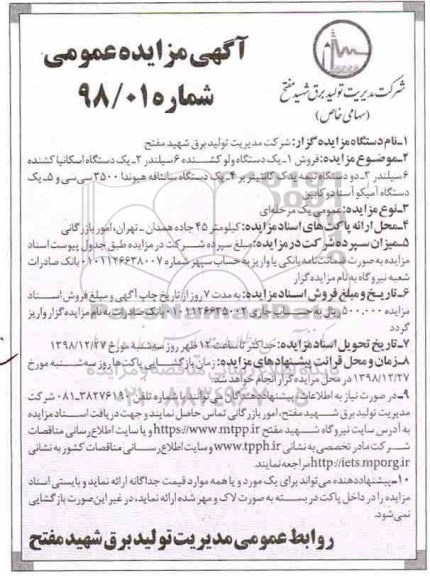 آگهی مزایده عمومی
شماره ۹۸/۰۱
شرکت مدیریت تولید برق شهید مفتح
(سهامی خاص)
۱-نام دستگاه مزایده گزار: شرکت مدیریت تولید برق شهید مفتح
۲-موضوع مزایده: فروش ۱-یک دستگاه ولو کشنده ۶ سیلندر ۲-یک دستگاه اسکانیا کشنده
۶ سیلندر ۳-دو دستگاه نیمه یدک کانتینر بر ۴-یک دستگاه سانتافه هیوندا ۳۵۰۰ سی سی و ۵-یک
دستگاه آمیکو آسنا دو کابین
۳-نوع مزایده: عمومی یک مرحله‌ای
۴-محل ارائه پاکت های اسناد مزایده: کیلومتر ۴۵ جاده همدان - تهران، امور بازرگانی
۵-میزان سپرده شرکت در مزایده: مبلغ سپرده شرکت در مزایده طبق جدول پیوست اسناد
مزایده به صورت ضمانت نامه بانکی یا واریز به حساب سپهر شماره ۰۱۰۱۱۲۶۶۳۸۰۰۷ بانک صادرات
شعبه نیروگاه به نام مزایده گزار
۶-تاریخ و مبلغ فروش اسناد مزایده: به مدت ۷ روز از تاریخ چاپ آگهی و مبلغ فروش اسناد
مزایده ۵۰۰.۰۰۰ ریال به جاری ۰۱۰۱۱۲۶۶۳۵۰۰۲ بانک صادرات به نام مزایده گزار واریز
گردد
۷-تاریخ تحویل اسناد مزایده: حداکثر تا ساعت ۱۲ ظهر روز سه شنبه مورخ ۱۳۹۸/۱۲/۲۷
۸-زمان و محل قرائت پیشنهادهای مزایده: زمان بازگشایی پاکت ها روز سه شنبه مورخ
۱۳۹۸/۱۲/۲۷ در محل مزایده گزار انجام خواهد شد
۹-در صورت نیاز به اطلاعات پیشنهاددهندگان می توانند با شماره تلفن ۳۸۲۷۶۱۹۰-۰۸۱ شرکت
مدیریت تولید برق شهید مفتح، امور بازرگانی تماس حاصل نمایند و جهت دریافت اسناد مزایده
به آدرس سایت نیروگاه شهید مفتح https://www.mtpp.ir و یا سایت اطلاع رسانی مناقصات
شرکت مادر تخصصی به نشانی www.tpph.ir و سایت اطلاع رسانی مناقصات کشور به نشانی
http://iets.mporg.ir مراجعه نمایند.
۱۰-پیشنهاددهنده می تواند برای یک مورد و یا همه موارد قیمت جداگانه ارائه نماید و بایستی اسناد
مزایده را در داخل پاکت در بسته به صورت لاک و مهر شده ارائه نماید، در غیر این صورت بازگشایی
نمی شود.
روابط عمومی مدیریت تولید برق شهید مفتح